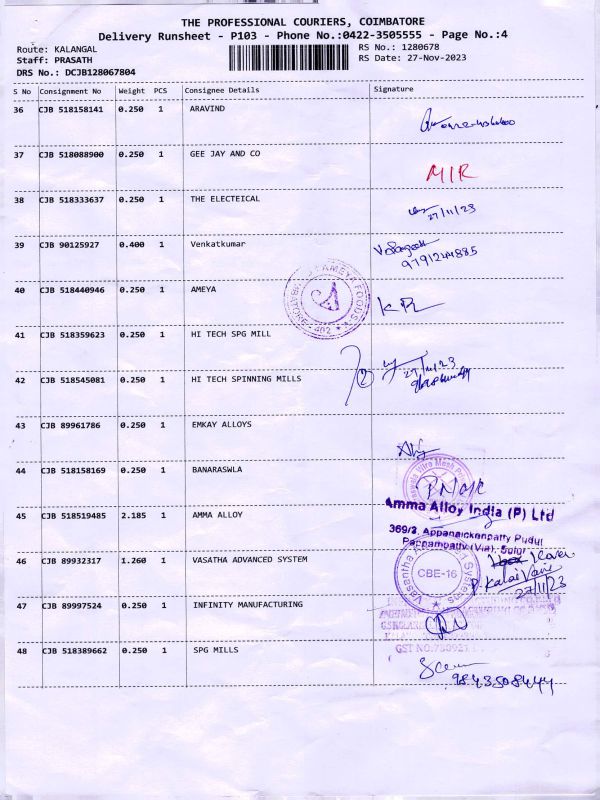 THE PROFESSIONAL COURIERS, COIMBATORE
Delivery Runsheet - P103 - Phone No.:0422-3505555 - Page No.:4
Route: KALANGAL
Staff: PRASATH
DRS No.: DCJB128067804
RS No.: 1280678
RS Date: 27-Nov-2023
S No Consignment No Weight PCS Consignee Details Signature
36 CJB 518158141 0.250 1 ARAVIND
37 CJB 518088900 0.250 1 GEE JAY AND CO M/R
38 CJB 518333637 0.250 1 THE ELECTEICAL 27/11/23
39 CJB 90125927 0.400 1 Venkatkumar
9791244885
40 CJB 518440946 0.250 1 AMEYA
AMEYA FOODS
41 CJB 518359623 0.250 1 HI TECH SPG MILL
42 CJB 518545081 0.250 1 HI TECH SPINNING MILLS 2 27/11/23
43 CJB 89961786 0.250 1 EMKAY ALLOYS
44 CJB 518158169 0.250 1 BANARASWLA
Wire Mesh
45 CJB 518519485 2.185 1 AMMA ALLOY
Amma Alloy India (P) Ltd
369/3, Appanaickenpatty Pudur
Pappampatty (Via), Sulur
46 CJB 89932317 1.260 1 VASATHA ADVANCED SYSTEM
Vasantha Systems
CBE-16
Kalai Vani
27/11/23
47 CJB 89997524 0.250 1 INFINITY MANUFACTURING
48 CJB 518389662 0.250 1 SPG MILLS
9843508444